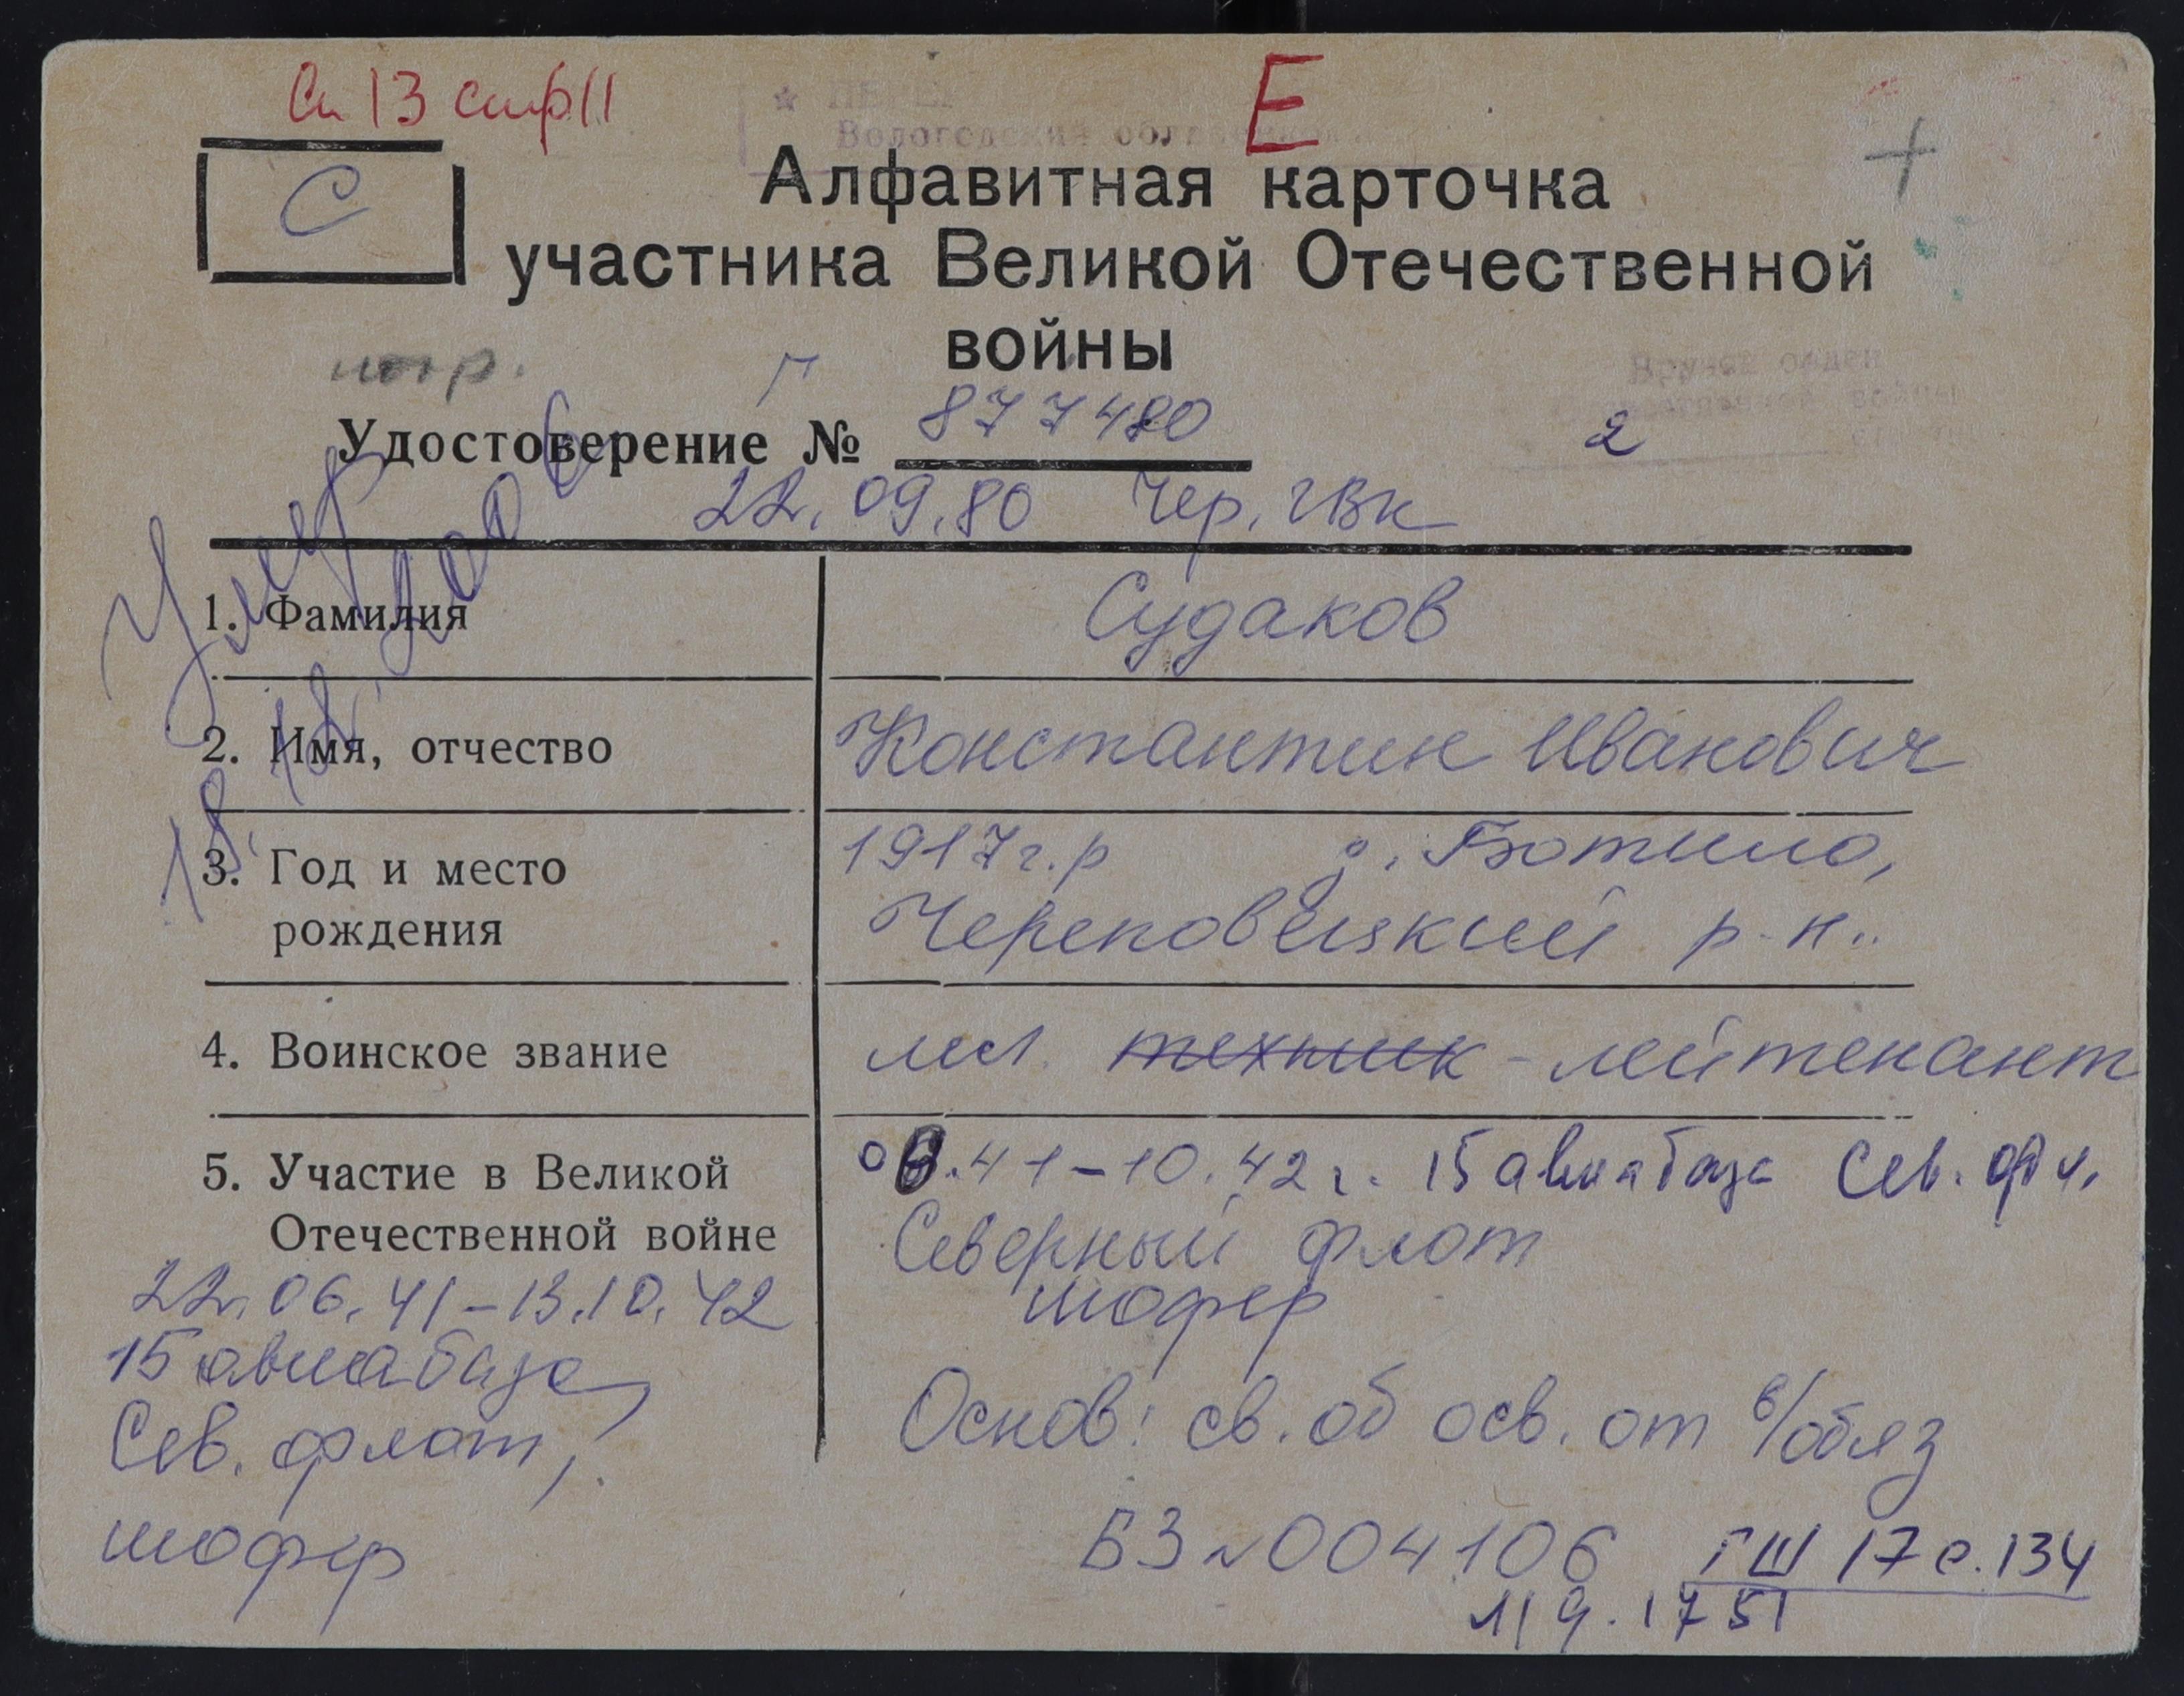 Сп 13 стр 11
Е
С
Алфавитная карточка
участника Великой Отечественной
войны
Г
Удостоверение № 877480
2
22.09.80 Чер. ГВК
Умер
18.12.2006
1. Фамилия Судаков
2. Имя, отчество Константин Иванович
3. Год и место рождения 1917г.р д.
Череповецкий р-н.
4. Воинское звание мл. техник - лейтенант
5. Участие в Великой Отечественной войне
06.41-10.42г. 15 авиабаза Сев. фл.
Северный флот
шофер
22.06.41-13.10.42
15 авиабаза,
Сев. флот,
шофер
Основ: св. об осв. от в/обяз
БЗ №004106
ГШ 17 с.134